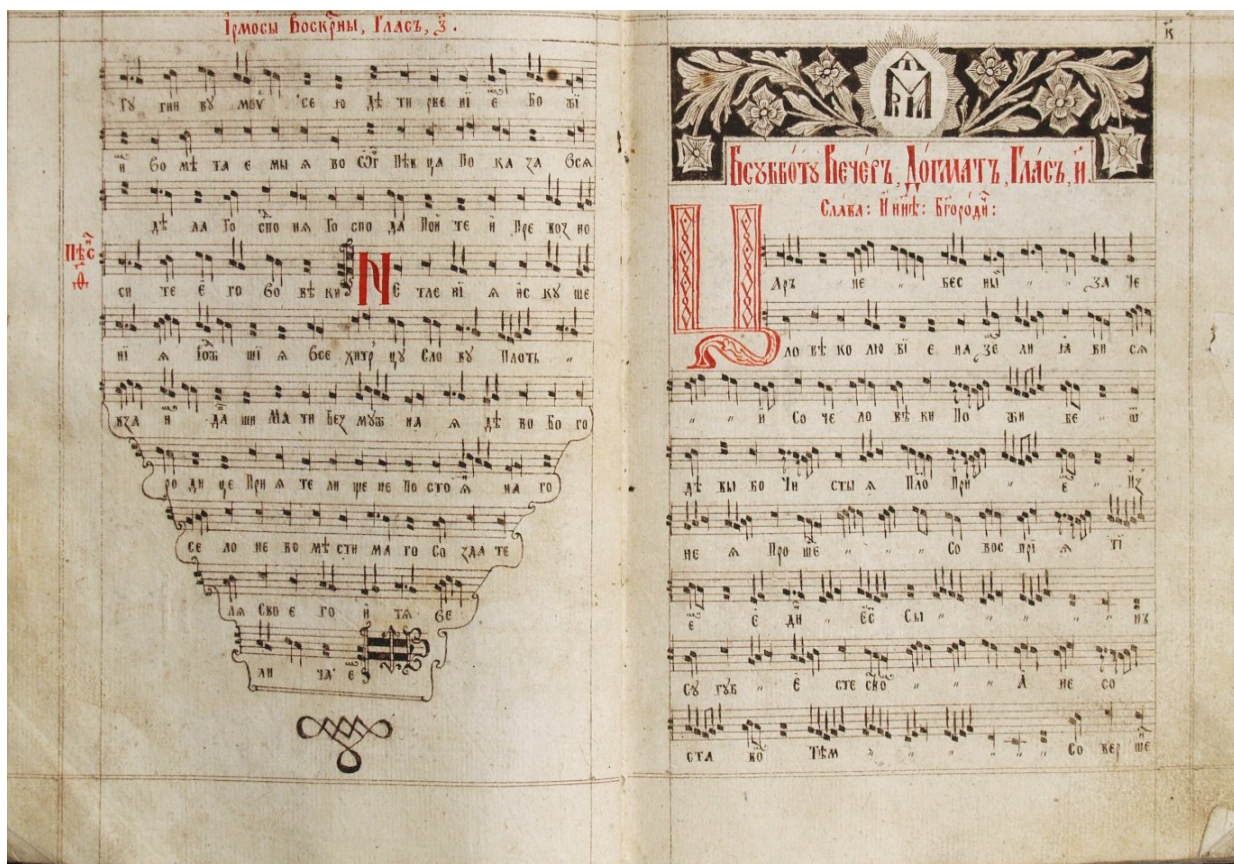 І҆рмосы Воскр҃ны, Гласъ, з҃.
гу ги ни мѹ се ю дѣ ти рве нїе Бо жї
й во мѣ та е мы я во Пѣв ца По ка за вся
дѣ ла Го спо ня Го спо да Пой те й Пре воз но
Пѣс
си те е го во вѣ ки Не тле нї я ис ку ше
нї я ше я все хитр цу Сло ву Плоть „
вза й да ши Ма ти Без муж на я дѣ во Бо го
ро ди це Прї я те ли ше не По сто на го
се ло не во мѣ сти ма го Со зда те
ля Сво е го й тя ве
ли ча е
к҃
МАРІА
Всѹббо́тѹ Вечеръ, До́гматъ, Гла́съ, и҃.
Сла́ва: И нн҃ѣ: Бг҃оро́ди:
Ц арь не „ бес ны „ „ за че
ло вѣ ко лю бї е на зе ли ꙗ ви ся
„ „ й Со че ло вѣ ки По жи ве „ ѿ
дѣ вы бо Чи сты я Пло При „ е „ Из
не я Про ше „ „ „ Со вос прї я тї
е е ди „ ес Сы „ „ „ „ нъ
Су губ „ е сте ство „ „ „ А не со
ста во Тѣм „ „ „ „ „ „ Со вер ше